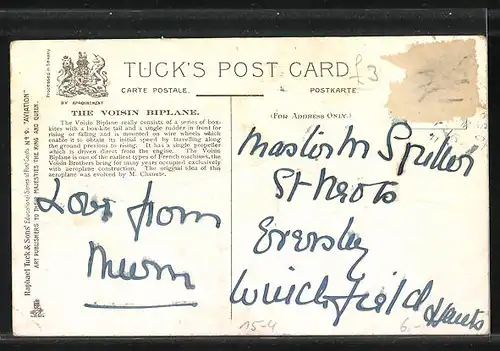 TUCK'S POST CARD
CARTE POSTALE.
POSTKARTE.
BY APPOINTMENT
£3
THE VOISIN BIPLANE.
The Voisin Biplane really consists of a series of box-
kites with a box-kite tail and a single rudder in front for
rising or falling and is mounted on wire wheels which
enable it to obtain its initial speed by travelling along
the ground previous to rising. It has a single propeller
which is driven direct from the engine. The Voisin
Biplane is one of the earliest types of French machines, the
Voisin Brothers being for many years occupied exclusively
with aeroplane construction. The original idea of this
aeroplane was evolved by M. Chanute.
Love from
Mum
(FOR ADDRESS ONLY.)
Master M Spiller
St Neots
Eversley
Winchfield
Hants
15-4
6.-
Raphael Tuck & Sons' Educational Series of Post Cards, No 9. "AVIATION"
ART PUBLISHERS TO THEIR MAJESTIES THE KING AND QUEEN.
Processed in Saxony.